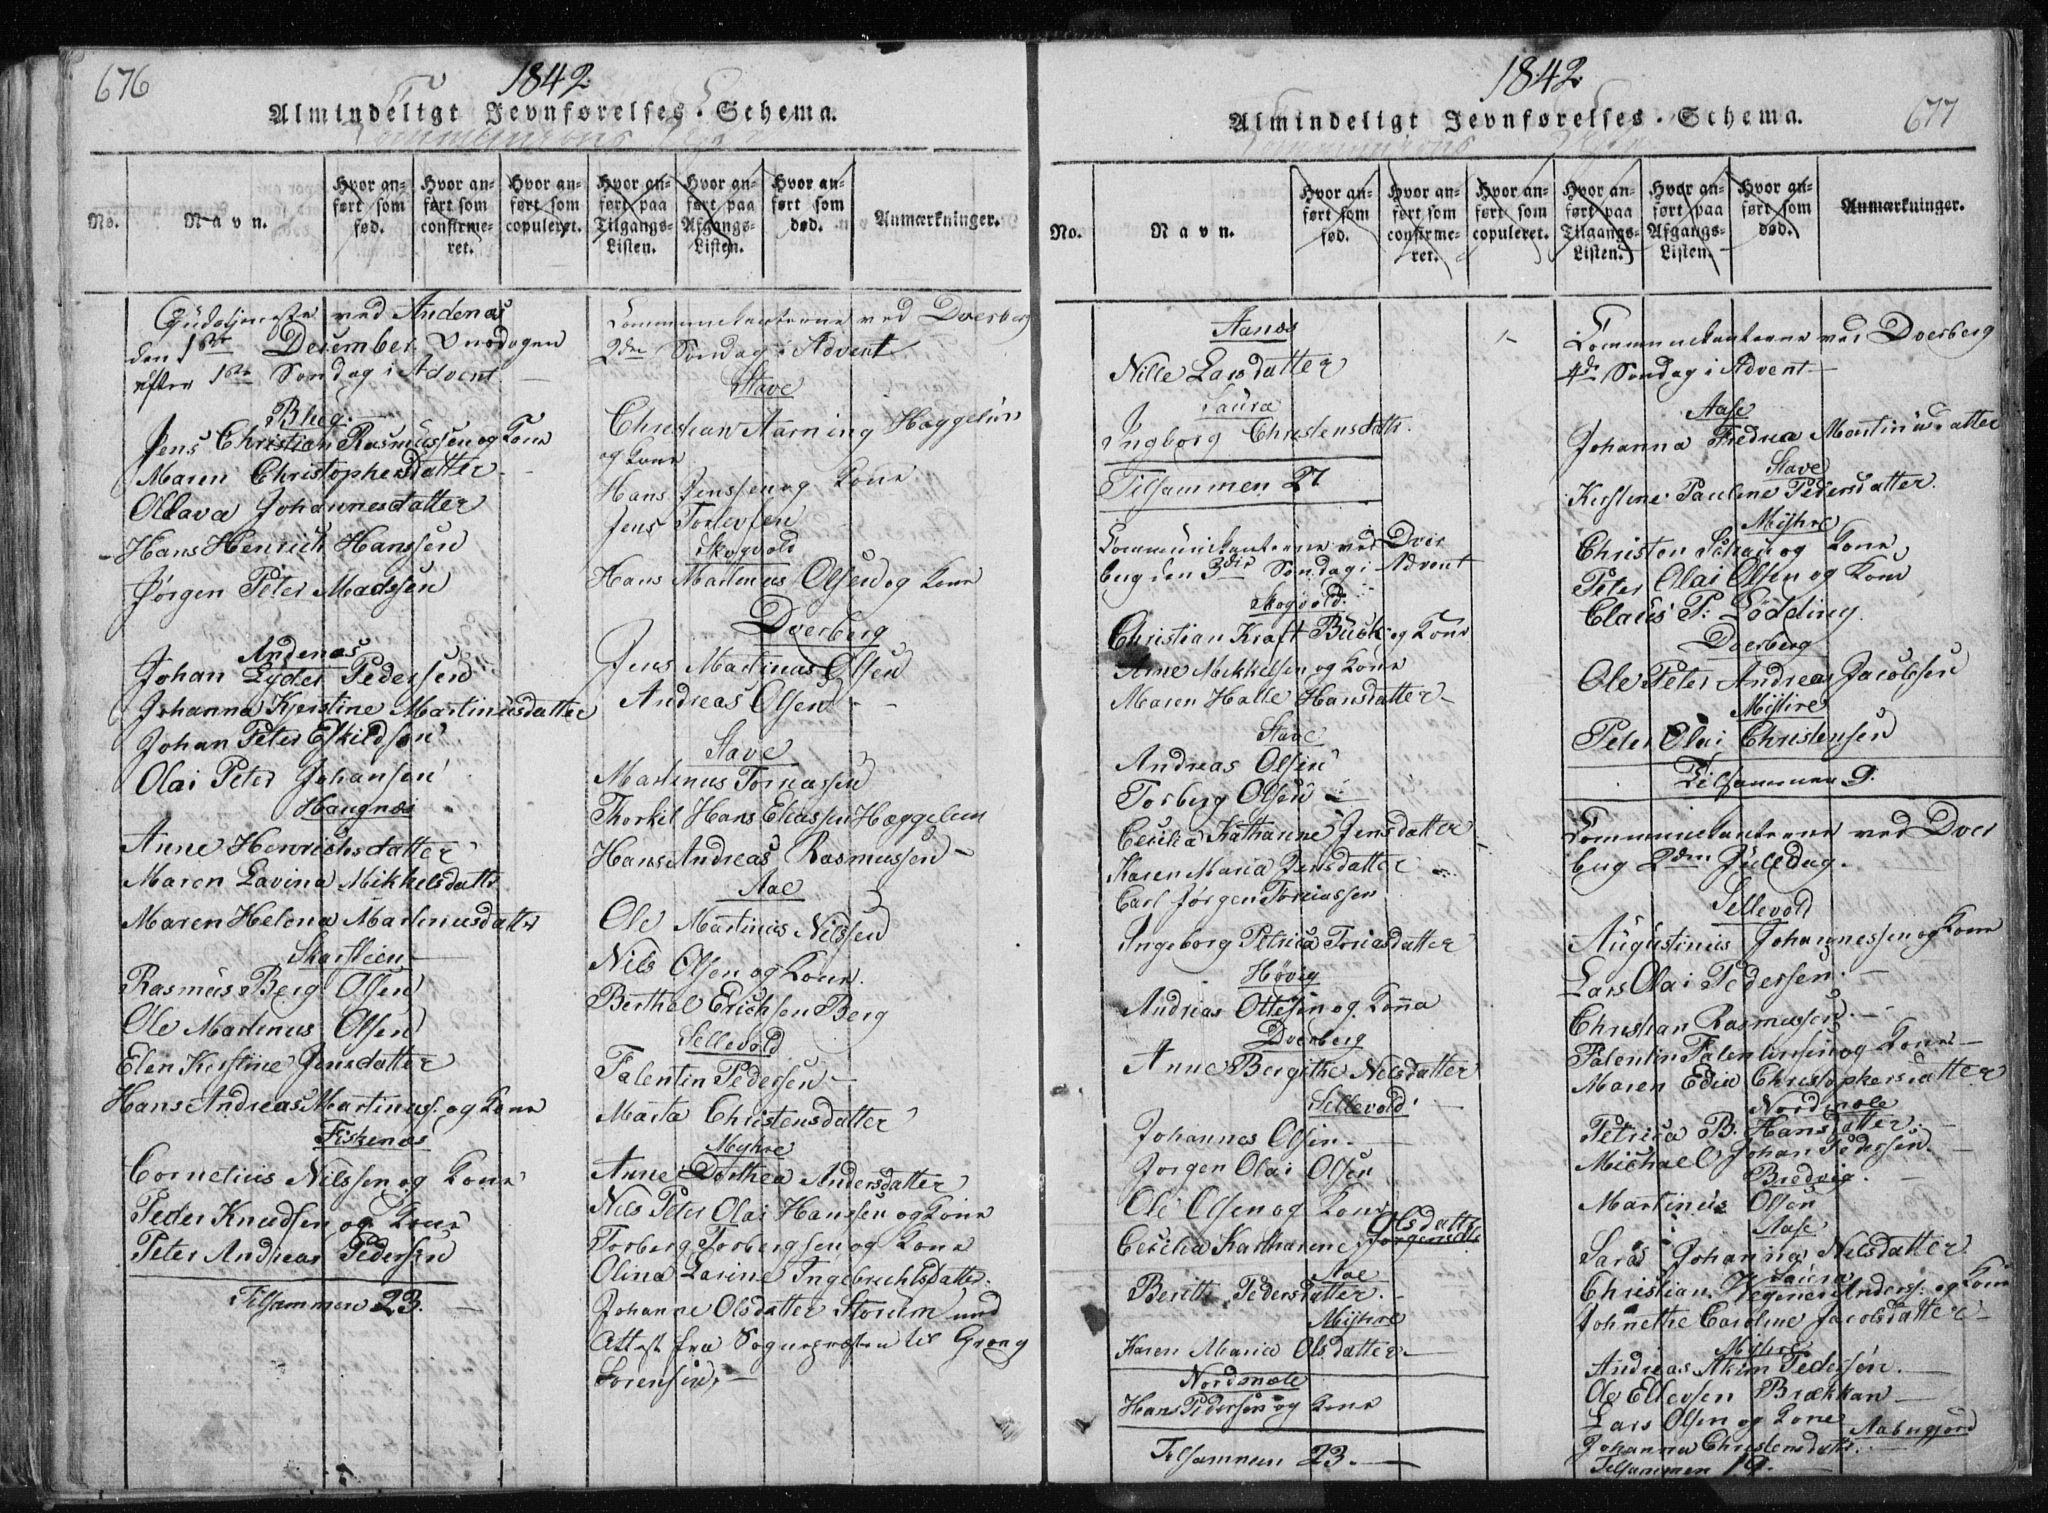 676
1842
Almindeligt Jevnførelses-Schema.
Communions
No.
Navn.
Hvor anført som fød.
Hvor anført som confirmeret.
Hvor anført som copuleret.
Hvor anført paa Tilgangs-Listen.
Hvor anført paa Afgangs-Listen.
Hvor anført som død.
Anmærkninger.
Gudstjeneste ved Andenæs
den 1ste December Onsdagen
efter 1ste Søndag i Advent
Bleg
Jens Christian Rasmussen og Kone
Maren Christophersdatter
Ollava Johannesdatter
Hans Henrich Hanssen
Jørgen Peter Madssen
Andenæs
Johan Lyder Pedersen
Johanna Kjerstine Martinusdatter
Johan Peter Eskildsen
Olai Peter Johansen
Haugnæs
Anne Henrichsdatter
Maren Lavina Mikkelsdattr
Maren Helena Martinusdatter
Skarstien
Rasmus Berg Olsen
Ole Martinus Olsen
Elen Kirstine Jensdatter
Hans Andreas Martinuss. og Kone
Fiskenæs
Cornelius Nilssen og Kone
Peder Knudsen og Kone
Peter Andreas Pedersen
Tilsammen 23.
Communicanterne ved Dverberg
2den Søndag i Advent
Stave
Christian Aarning Hæggelun
og Kone
Hans Jenssen og Kone
Jens Torlevsen
Skogvold
Hans Martinus Olsen og Kone
Dverberg
Jens Martinus Olsen
Andreas Olsen
Stave
Martinus Toreassen
Thorkil Hans Eliassen Hæggelun
Hans Andreas Rasmussen
Aae
Ole Martinus Nilssen
Nils Olsen og Kone.
Berthel Erichsen Berg
Sellevold
Falentin Pedersen
Marta Christensdatter
Myhre
Anne Dorthea Andersdatter
Nils Peter Olai Hanssen og Kone
Torberg Torbergsen og Kone
Olina Larine Ingebrechtsdatter
Johanne Olsdatter Storum med
Attest fra Sognepræsten til Grong
Sorensen,
1842
677
Almindeligt Jevnførelses-Schema.
Communions
No.
Navn.
Hvor anført som fød.
Hvor anført som confirmeret.
Hvor anført som copuleret.
Hvor anført paa Tilgangs-Listen.
Hvor anført paa Afgangs-Listen.
Hvor anført som død.
Anmærkninger.
Aanæs
Nille Larsdatter
Saura
Ingborg Christensdattr.
Tilsammen 27
Communicanterne ved Dver
berg den 3die Søndag i Advent
Skogvold
Christian Kraft Buck og Kone
Arne Mikkelsen og Kone
Maren Halle Hansdatter
Stave
Andreas Olsen
Torberg Olsen
Cecilia Kathanne Jensdatter
Karen Maria Jensdatter
Carl Jørgen Toriassen
Ingeborg Petrica Toriasdatter
Høvig
Andreas Ottesen og Kona
Dverberg
Anne Bergithe Nelsdatter
Sellevold
Johannes Olsen
Jørgen Olai Olsen
Ole Olsen og Kone
Cecilia Katharine Jørgensdr Olsdatter
Aae
Berith Pedersdatter.
Myhre
Karen Maria Olsdatter
Nordmele
Hans Pedersen og Kone
Tilsammen 23.
Communicanterne ved Dverberg
4de Søndag i Advent
Aase
Johanna Fredrea Martinusdatter
Stave
Kirstine Pauline Pedersdatter.
Myhre
Christen Schau og Kone
Peter Olai Olsen og Kone
Claus P. Lødding
Dverberg
Ole Peter Andreas Jacobsen
Myhre
Peter Olai Christensen
Tilsammen 9.
Communicanterne ved Dver
berg 2den Juledag.
Sellevold
Augustinus Johannessen og Kone
Lars Olai Pedersen.
Christian Rasmussen.
Falentin Falentinsen og Kone
Maren Edia Christophersdatter
Nordmele
Petrica B. Hansdatter.
Michael Johan Pedersen.
Bredvig.
Martinus Olsen
Aase
Sara Johanna Nelsdatter
Saura
Christian Wegener Anderss. og Kone
Johnethe Caroline Jacobsdatter
Myhre
Andreas Akim Pedersen.
Ole Ellevsen Brækkan
Lars Olsen og Kone
Aabergjord
Johanna Christensdatr.
Tilsammen 19.